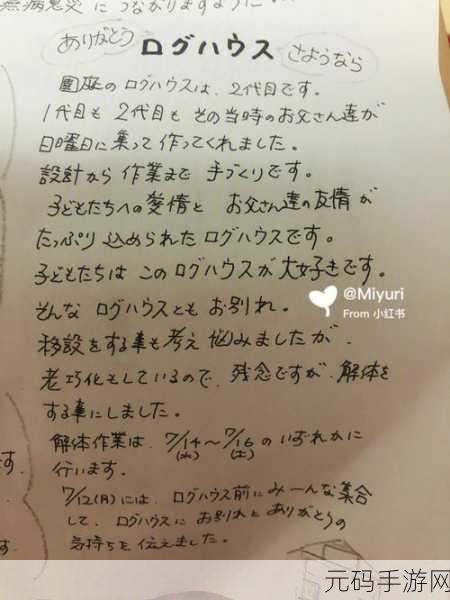 無病息災につながりますように
ありがとう ログハウス さようなら
園庭のログハウスは、2代目です。
1代目も2代目もその当時のお父さん達が
日曜日に集って作ってくれました。
設計から作業まで手づくりです。
子どもたちへの愛情とお父さん達の友情が
たっぷり込められたログハウスです。
子どもたちはこのログハウスが大好きです。
そんなログハウスともお別れ。
移設をする事も考え悩みましたが、
老巧化もしているので、残念ですが、解体を
する事にしました。
解体作業は、7/14〜7/16のいずれかに
(水) (土)
行います。
7/12(月)には、ログハウス前にみーんな集合
して、ログハウスにお別れとありがとうの
気持ちを伝えました。
す
す.
@Miyuri
From 小红书
元码手游网